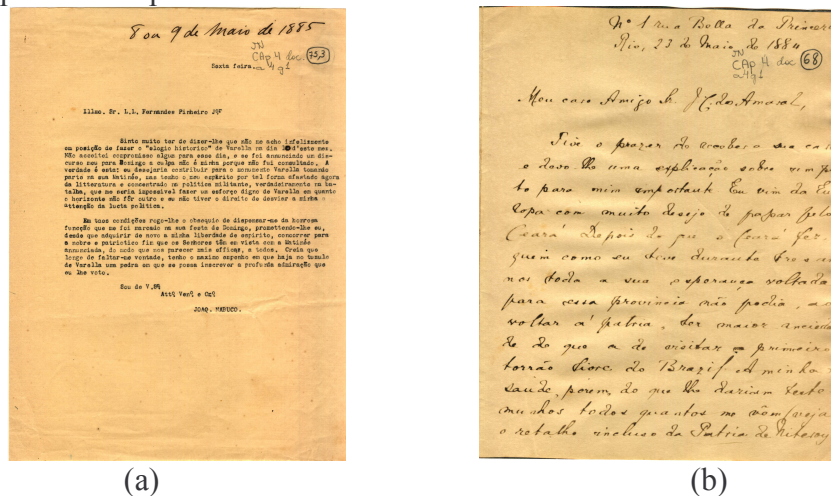 8 ou 9 de Maio de 1885
JN
CAp 4 doc. 75,3
Sexta feira.
a4 g1
Illmo. Sr. L.L. Fernandes Pinheiro Jºr
Sinto muito ter de dizer-lhe que não me acho infelizmente
na posição de fazer o "elogio historico" de Varella no dia 10 d'este mez.
Não acceitei compromisso algum para esse dia, e se foi annunciado um dis-
curso meu para Domingo a culpa não é minha porque não fui consultado. A
verdade é esta: eu desejaria contribuir para o monumento Varella tomando
parte na sua Matinée, mas tenho o meu espirito por tal forma afastado agora
da litteratura e concentrado na politica militante, verdadeiramente na ba-
talha, que me seria impossivel fazer um esforço digno de Varella em quanto
o horizonte não fôr outro e eu não tiver o direito de desviar a minha
attenção da lucta politica.
Em taes condições rogo-lhe o obsequio de dispensar-me da honrosa
funcção que me foi marcada na sua festa de Domingo, promettendo-lhe eu,
desde que adquirir de novo a minha liberdade de espirito, concorrer para
o nobre e patriotico fim que os Senhores têm em vista com a Matinée
annunciada, do modo que vos parecer mais efficaz, a todos. Creia que
longe de faltar-me vontade, tenho o maximo empenho em que haja no tumulo
de Varella uma pedra em que se possa inscrever a profunda admiração que
eu lhe voto.
Sou de V.Sª
Attº Venº e Crº
JOAQ. NABUCO.
(a)
Nº 1 rua Bella da Princeza
Rio, 23 de Maio de 1884
JN
CAp 4 doc 68
a4 g1
Meu caro Amigo Sr. J C. do Amaral,
Tive o prazer de receber a sua ca
e devo lhe uma explicação sobre um pon
to para mim importante Eu vim da Eu
ropa com muito desejo de passar pelo
Ceará Depois do que o Ceará fez
quem como eu teve durante tres an
nos toda a sua esperança voltada
para essa provincia não podia, ao
voltar á patria, ter maior ancieda
de do que a de visitar o primeiro
torrão livre do Brazil A minha
saúde, porem, do que lhe dariam teste
munhos todos quantos me vêm (veja
o retalho incluso da Patria de Nitheroy
(b)